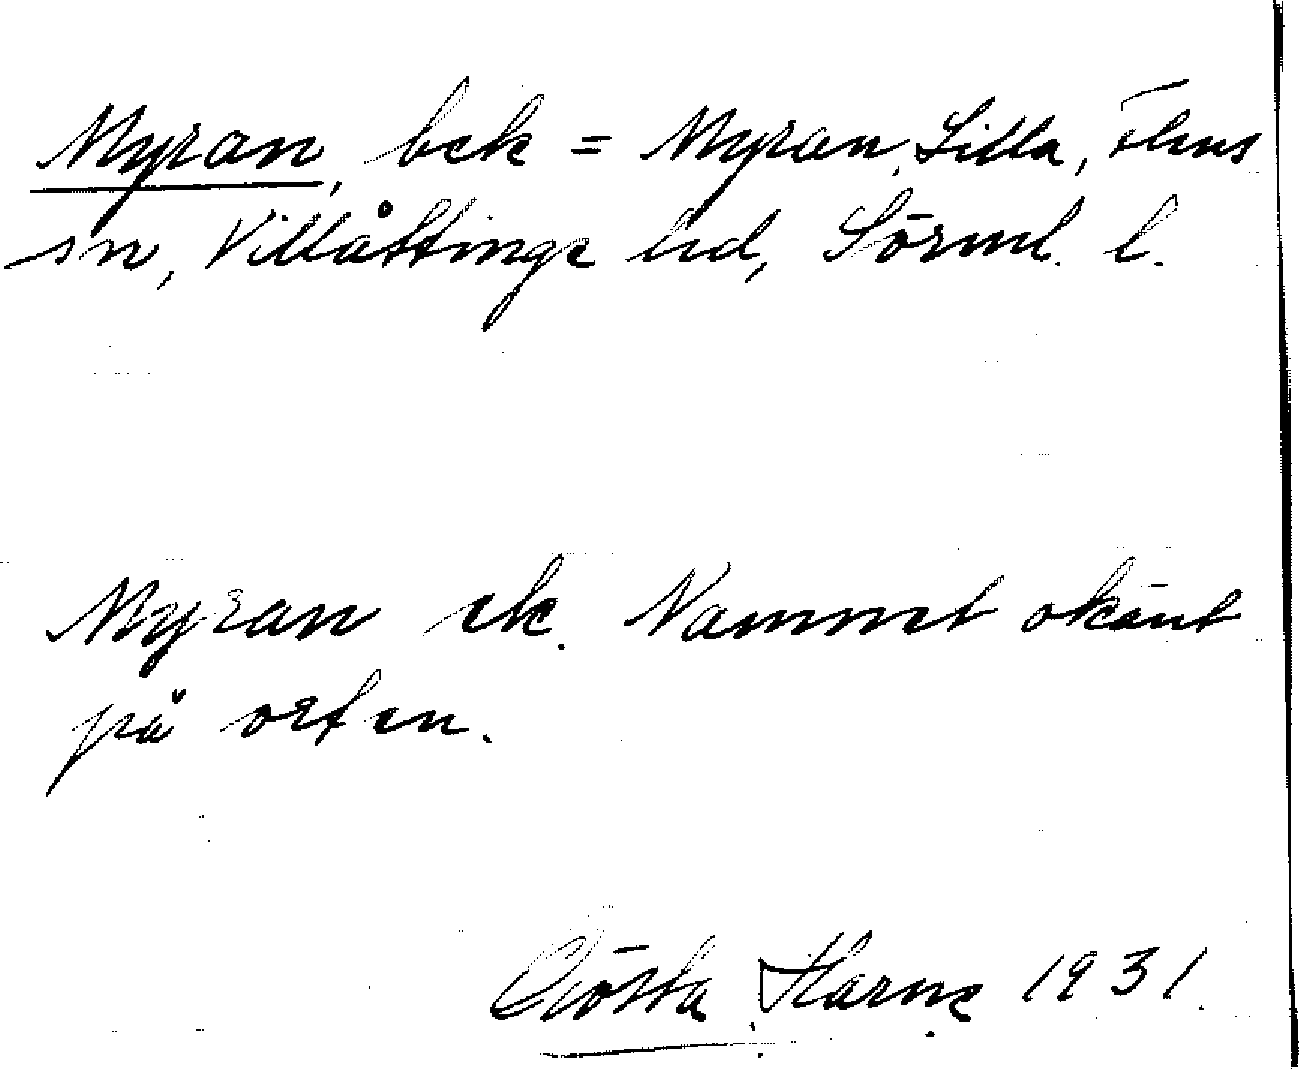 Myran, bek = Myran, Lilla, Flens
sn, Villåttinge hd, Sörml. l.
Myran ek. Namnet okänt
på orten.
Gösta Harne 1931.